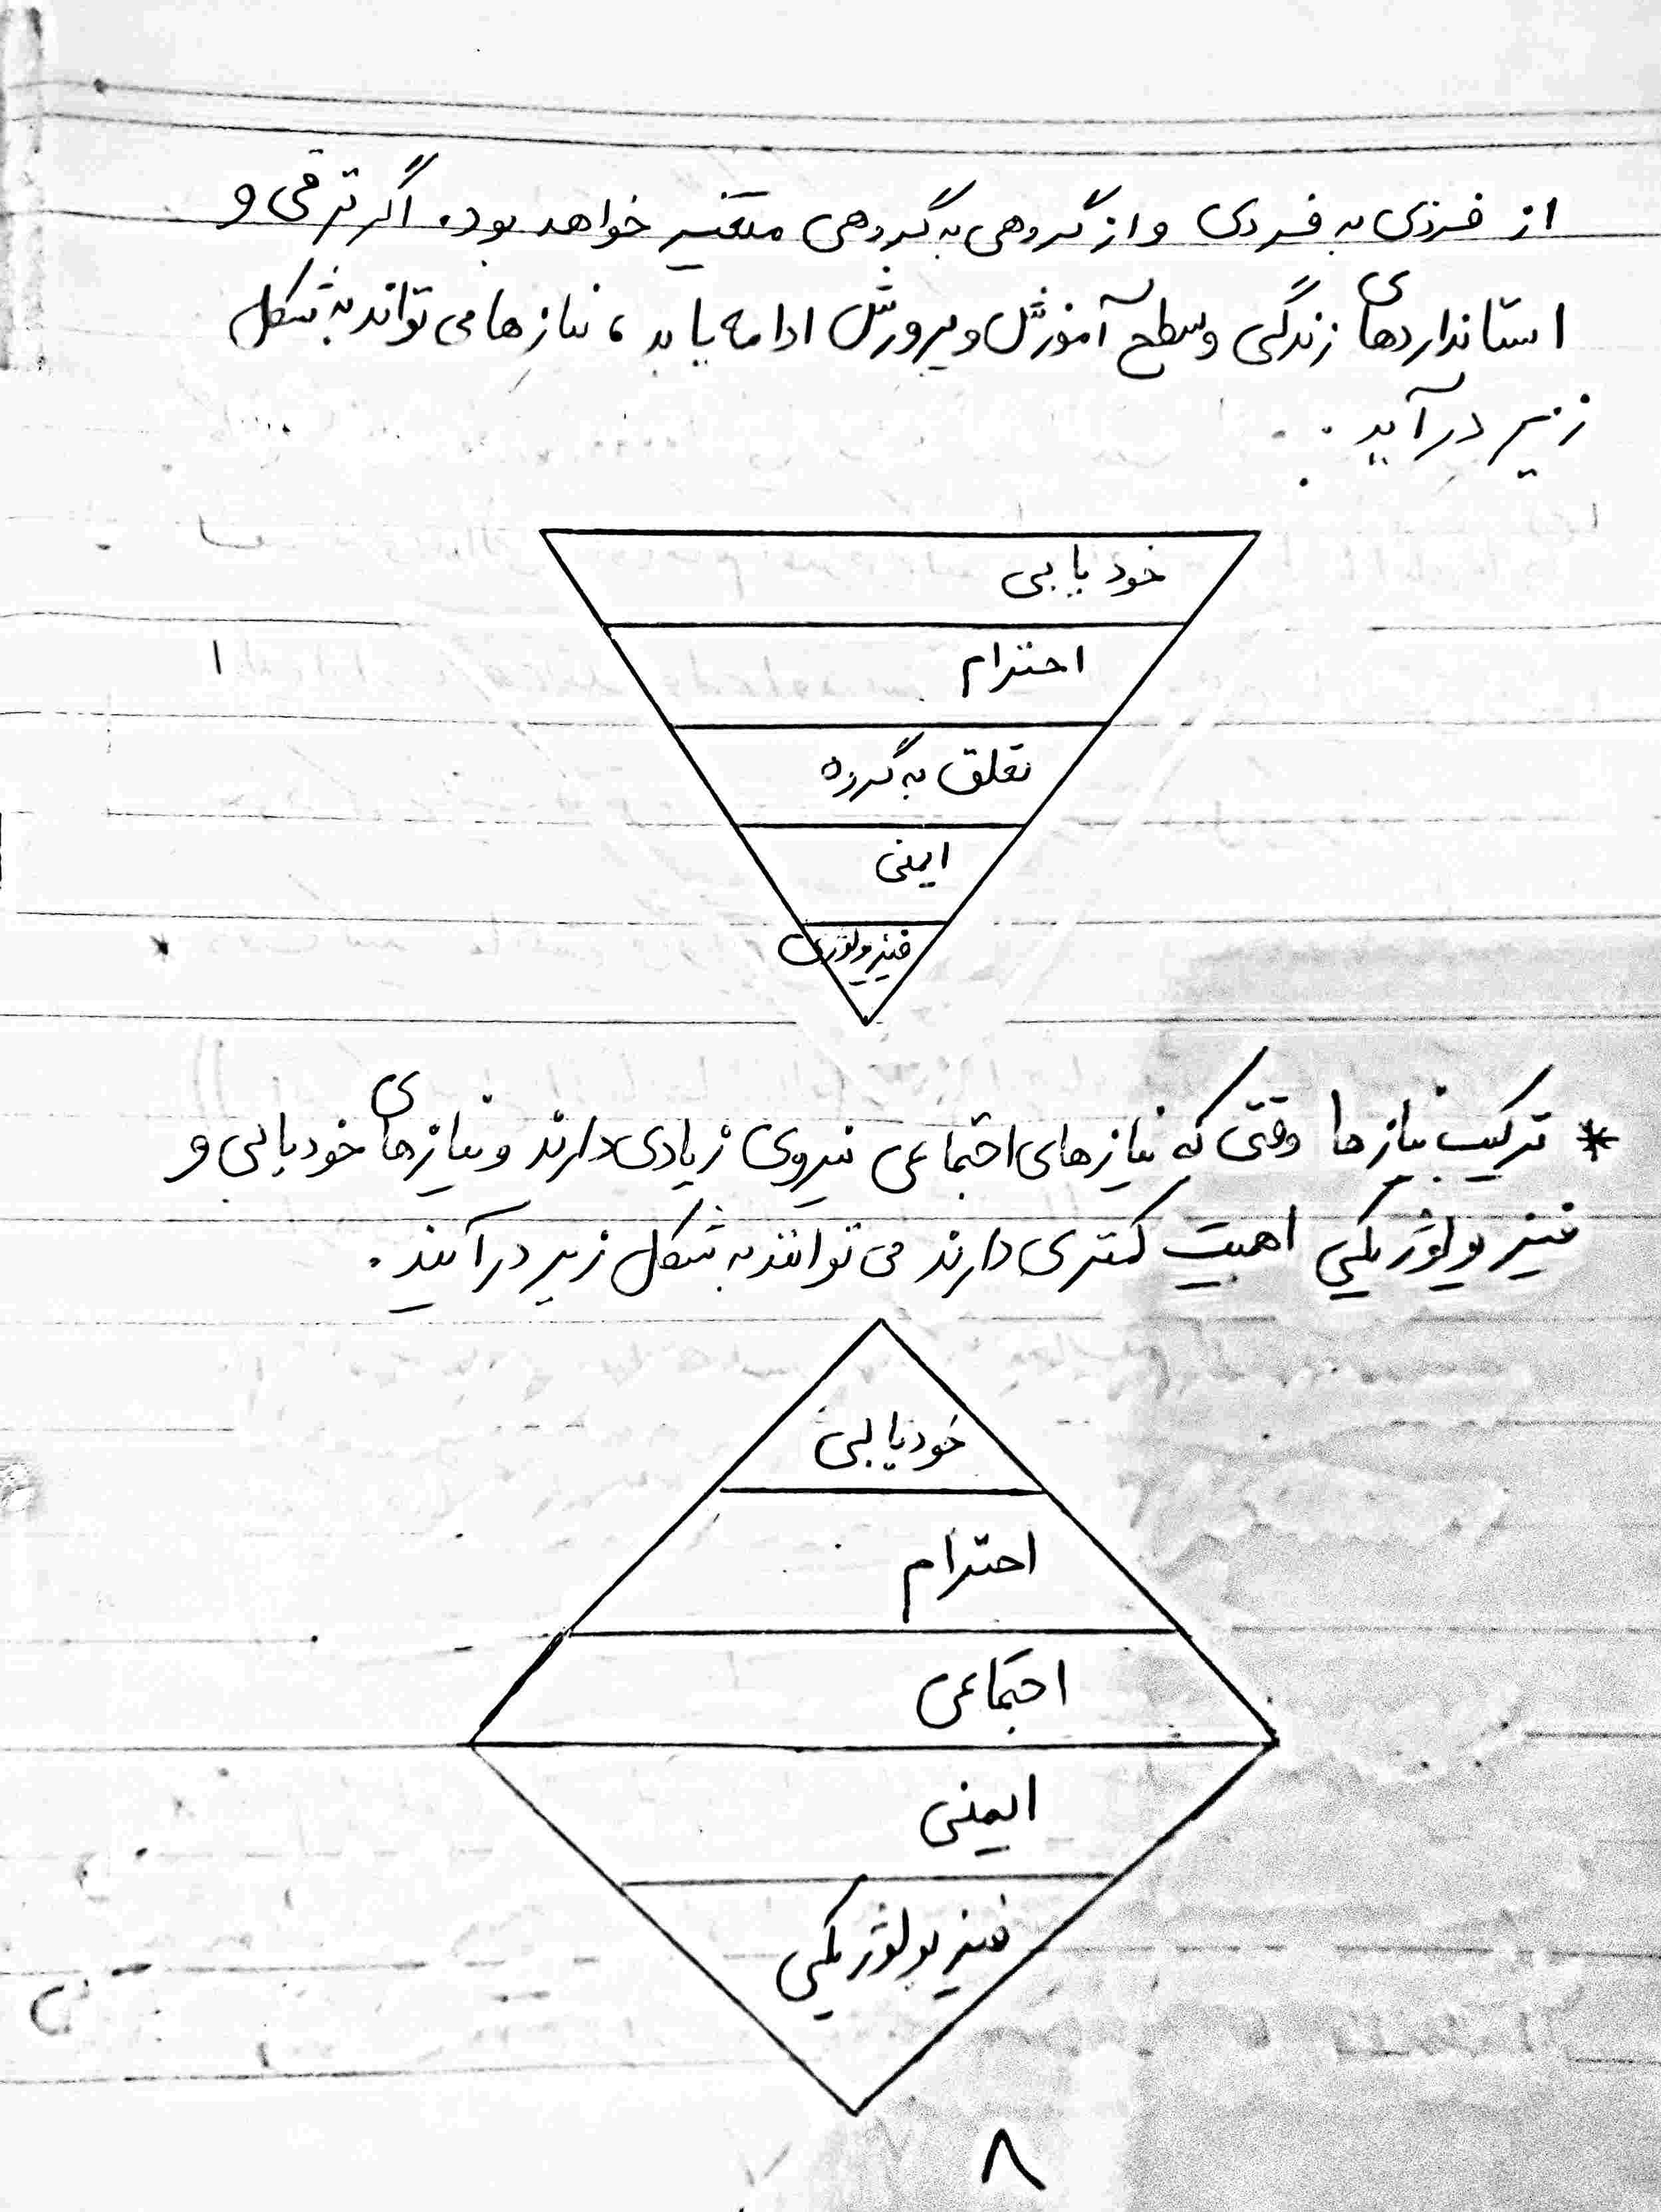 از فردی به فردی و از گروهی به گروهی متغیر خواهد بود. اگر ترقی و
استانداردهای زندگی و سطح آموزش و پرورش ادامه یابد، نیازها می تواند به شکل
زیر در آید.
خودیابی
احترام
تعلق به گروه
ایمنی
فیزیولوژی
* ترکیب نیازها وقتی که نیازهای اجتماعی نیروی زیادی دارند و نیازهای خودیابی و
فیزیولوژیکی اهمیت کمتری دارند می توانند به شکل زیر در آیند.
خودیابی
احترام
اجتماعی
ایمنی
فیزیولوژیکی
۸